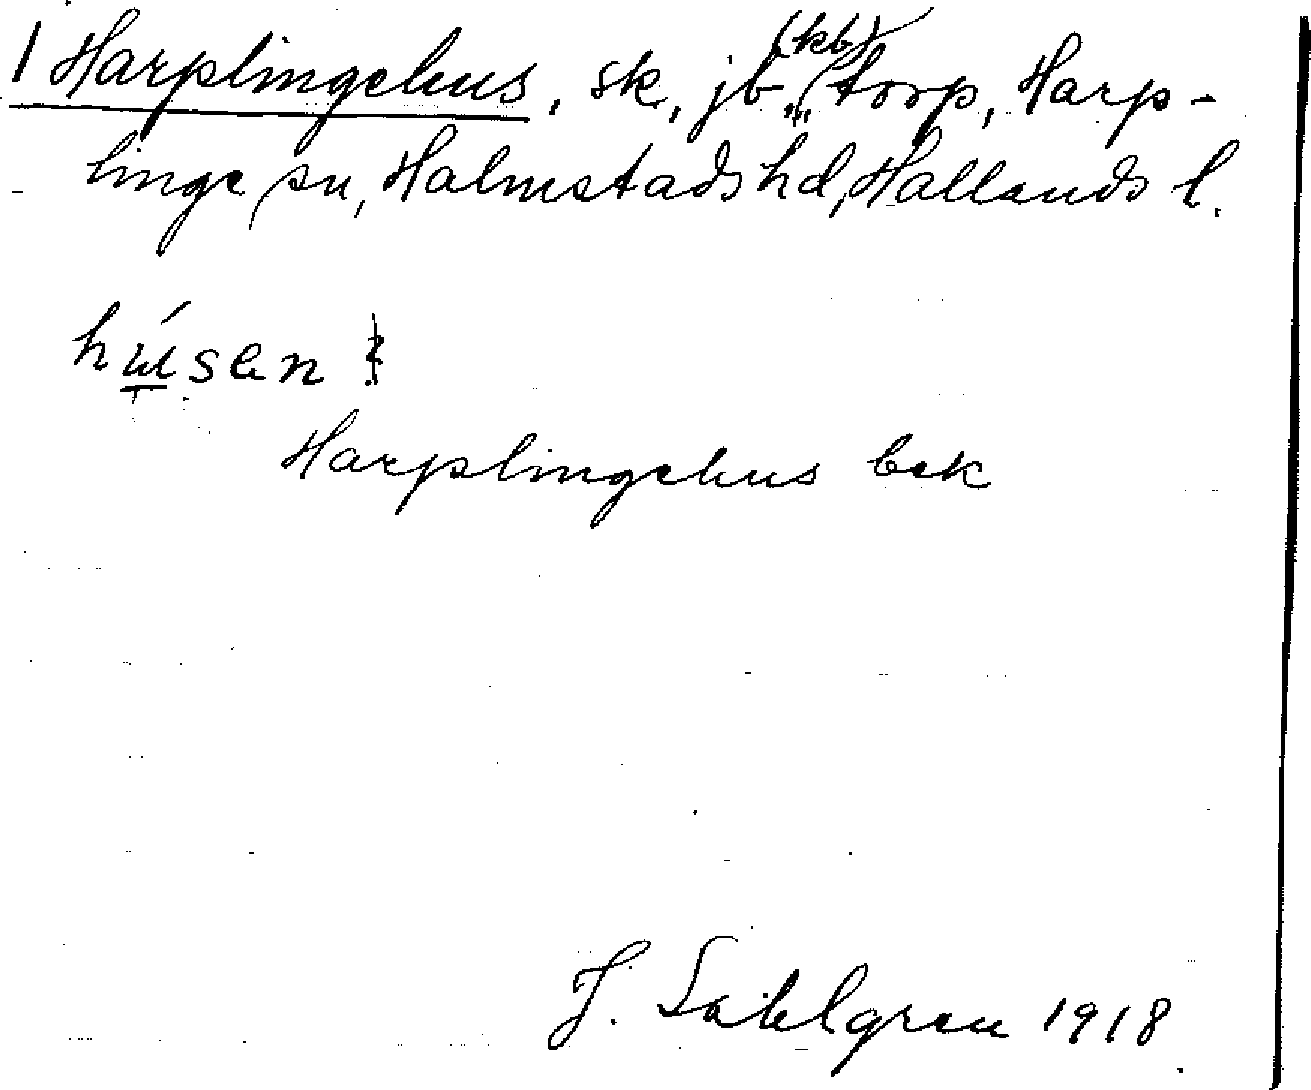 1 Harplingehus, sk, jb, (kb) torp, Harp-
linge sn, Halmstads hd, Hallands l.
húsen
Harplingehus bek
J. Sahlgren 1918